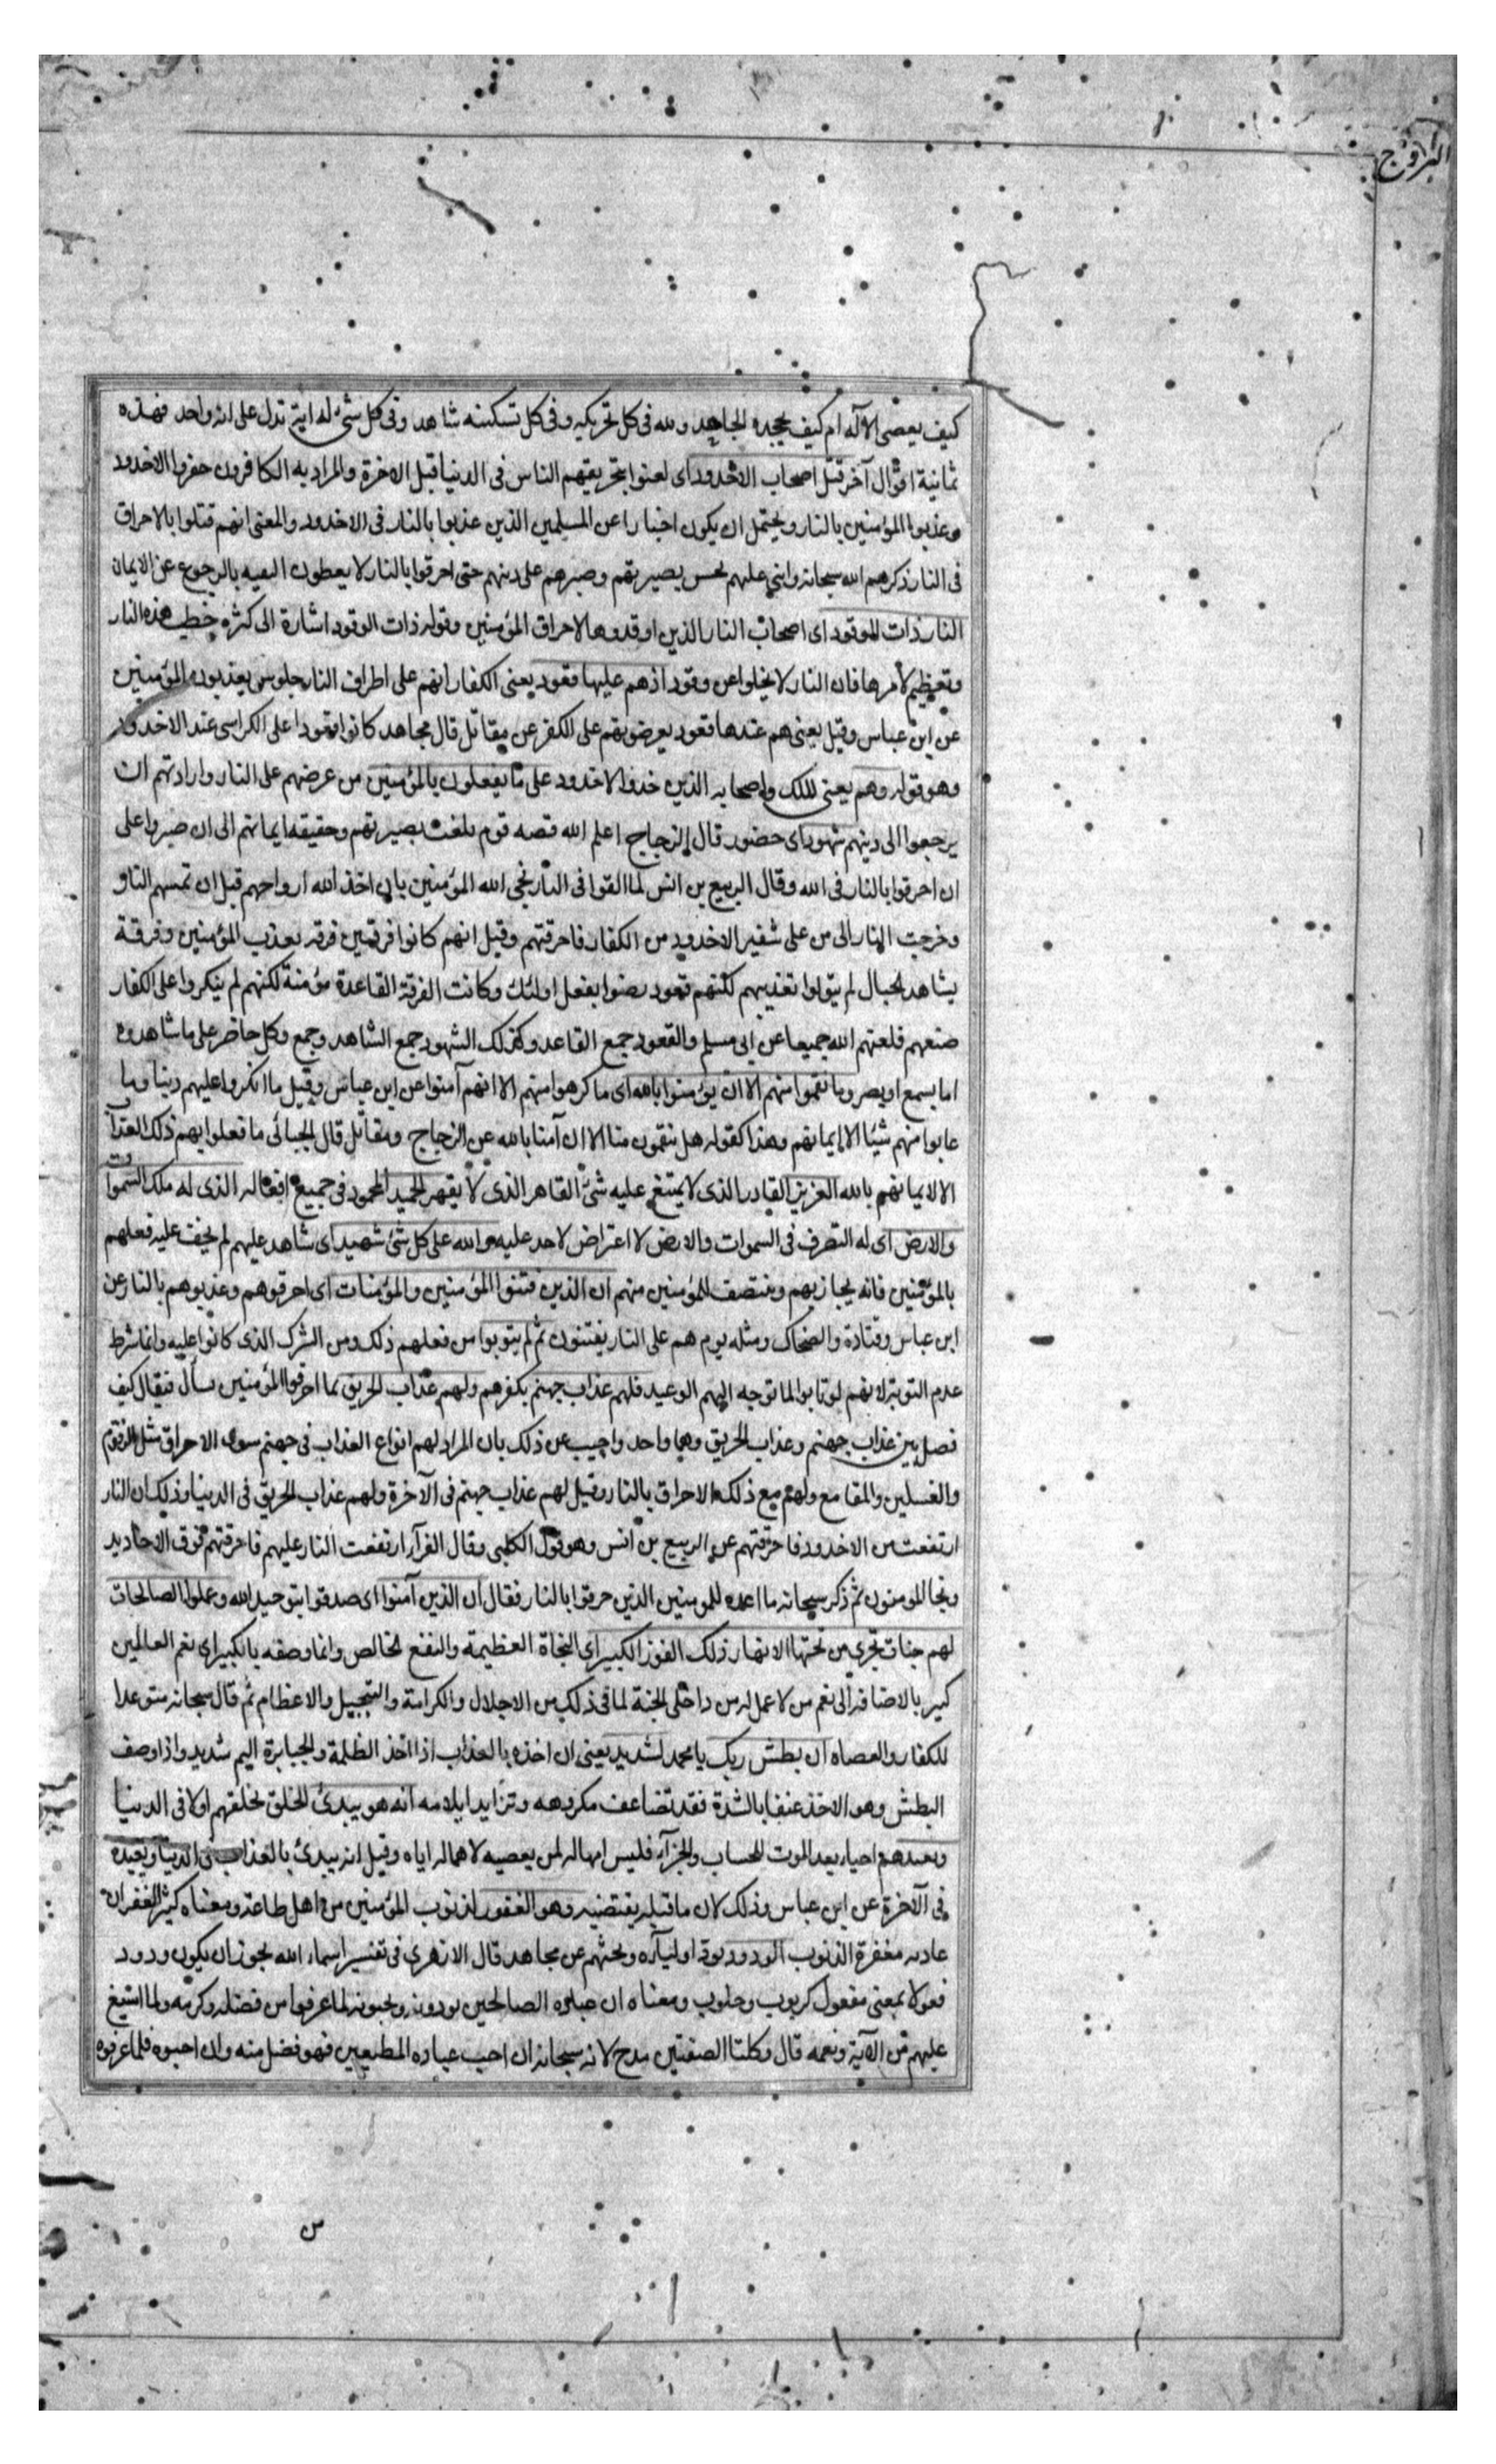 البروج
كيف يعصى الآله ام كيف يجحده الجاهد ولله فى كل تحريكه وفى كل تسكينه شاهد وفى كل شئ له اية تدل على انه واحد فهذه
ثمانية اقوال آخر قتل اصحاب الاخدود اى لعنوا بتحريقهم الناس فى الدنيا قبل الاخرة والمراد به الكافرون حفروا الاخدود
وعذبوا المؤمنين بالنار ويحتمل ان يكون اخبارا عن المسلمين الذين عذبوا بالنار فى الاخدود والمعنى انهم قتلوا بالاحراق
فى النار ذكرهم الله سبحانه واثنى عليهم بحسن بصيرتهم وصبرهم على دينهم حتى احرقوا بالنار لا يعطون التقيه بالرجوع عن الايمان
النار ذات الوقود اى اصحاب النار الذين اوقدوها لاحراق المؤمنين وقوله ذات الوقود اشارة الى كثره حطب هذه النار
وتعظيم لأمرها فان النار لا يخلوا عن وقود اذهم عليها قعود يعنى الكفار انهم على اطراف النار جلوس يعذبون المؤمنين
عن ابن عباس وقيل يعنى هم عندها قعود يعرضونهم على الكفر عن مقاتل قال مجاهد كانوا قعودا على الكراسى عند الاخدود
وهو قوله وهم يعنى الملك واصحابه الذين خدوا الاخدود على ما يفعلون بالمؤمنين من عرضهم على النار وارادتهم ان
يرجعوا الى دينهم شهود اى حضور قال الزجاج اعلم الله قصه قوم بلغت بصيرتهم وحقيقه ايمانهم الى ان صبروا على
ان احرقوا بالنار فى الله وقال الربيع بن انس لما القوا فى النار نجى الله المؤمنين بان اخذ الله ارواحهم قبل ان تمسهم النار
وخرجت النار الى من على شفير الاخدود من الكفار فاحرقتهم وقيل انهم كانوا فرقتين فرقه يعذب المؤمنين وفرقة
يشاهد الحال لم يتولوا تعذيبهم لكنهم قعود رضوا بفعل اولئك وكانت الفرقة القاعدة مؤمنة لكنهم لم ينكروا على الكفار
صنعهم فلعنهم الله جميعا عن ابى مسلم والقعود جمع القاعد وكذلك الشهود جمع الشاهد وجمع وكل حاضر على ما شاهدوه
اما بسمع او بصر وما نقموا منهم الا ان يؤمنوا بالله اى ما كرهوا منهم الا انهم آمنوا عن ابن عباس وقيل ما انكروا عليهم دينا وما
عابوا منهم شيئا الا ايمانهم وهذا كقوله هل تنقمون منا الا ان آمنا بالله عن الزجاج ومقاتل قال الجبائى ما فعلوا بهم ذلك العذاب
الا لايمانهم بالله العزيز القادر الذى لا يمتنع عليه شئ القاهر الذى لا يقهر الحميد المحمود فى جميع افعاله الذى له ملك السموات
والارض اى له التصرف فى السموات والارض لا اعتراض لاحد عليه والله على كل شئ شهيد اى شاهد عليهم لم يخف عليه فعلهم
بالمؤمنين فانه يجازيهم وينتصف للمؤمنين منهم ان الذين فتنوا المؤمنين والمؤمنات اى احرقوهم وعذبوهم بالنار عن
ابن عباس وقتادة والضحاك ومثله يوم هم على النار يفتنون ثم لم يتوبوا من فعلهم ذلك ومن الشرك الذى كانوا عليه وانما شرط
عدم التوبة لانهم لو تابوا لما توجه اليهم الوعيد فلهم عذاب جهنم بكفرهم ولهم عذاب الحريق بما احرقوا المؤمنين يسأل فيقال كيف
فصل بين عذاب جهنم وعذاب الحريق وهما واحد واجيب عن ذلك بان المراد لهم انواع العذاب فى جهنم سوى الاحراق مثل الزقوم
والغسلين والمقامع ولهم مع ذلك الاحراق بالنار وقيل لهم عذاب جهنم فى الآخرة ولهم عذاب الحريق فى الدنيا وذلك ان النار
ارتفعت من الاخدود فاحرقتهم عن الربيع بن انس وهو قول الكلبى وقال الفرآء ارتفعت النار عليهم فاحرقتهم فوق الاخاديد
ونجا المومنون ثم ذكر سبحانه ما اعده للمومنين الذين حرقوا بالنار فقال ان الذين آمنوا اى صدقوا بتوحيد الله وعملوا الصالحات
لهم جنات تجرى من تحتها الانهار ذلك الفوز الكبير اى النجاة العظيمة والنفع الخالص وانما وصفه بالكبير اى نعم العالمين
كبير بالاضافه الى نعم من لا عمل له من داخلى الجنة لما فى ذلك من الاجلال والكرامة والتبجيل والاعظام ثم قال سبحانه متوعدا
للكفار والعصاه ان بطش ربك يا محمد لشديد يعنى ان اخذه بالعذاب اذا اخذ الظلمة والجبابرة اليم شديد واذا وصف
البطش وهو الاخذ عنفا بالشدة فقد تضاعف مكروهه وتزايد ايلامه انه هو يبدئ الخلق بخلقهم اولا فى الدنيا
ويعيدهم احياء بعد الموت للحساب والجزآء فليس امهاله لمن يعصيه لاهماله اياه وقيل انه يبدئ بالعذاب فى الدنيا ويعيده
فى الآخرة عن ابن عباس وذلك لان ما قبله يقتضيه وهو الغفور لذنوب المؤمنين من اهل طاعته ومعناه كثير الغفران
عادته مغفرة الذنوب الودود يود اوليآءه ويحبهم عن مجاهد قال الازهرى فى تفسير اسماء الله يجوز ان يكون ودود
فعولا بمعنى مفعول كركوب وحلوب ومعناه ان عباده الصالحين يودونه ويحبونه لما عرفوا من فضله وكرمه ولما اسبغ
عليهم من الآية ونعمه قال وكلتا الصفتين مدح لانه سبحانه ان احب عباده المطيعين فهو فضل منه وان احبوه فلما عرفوه
س